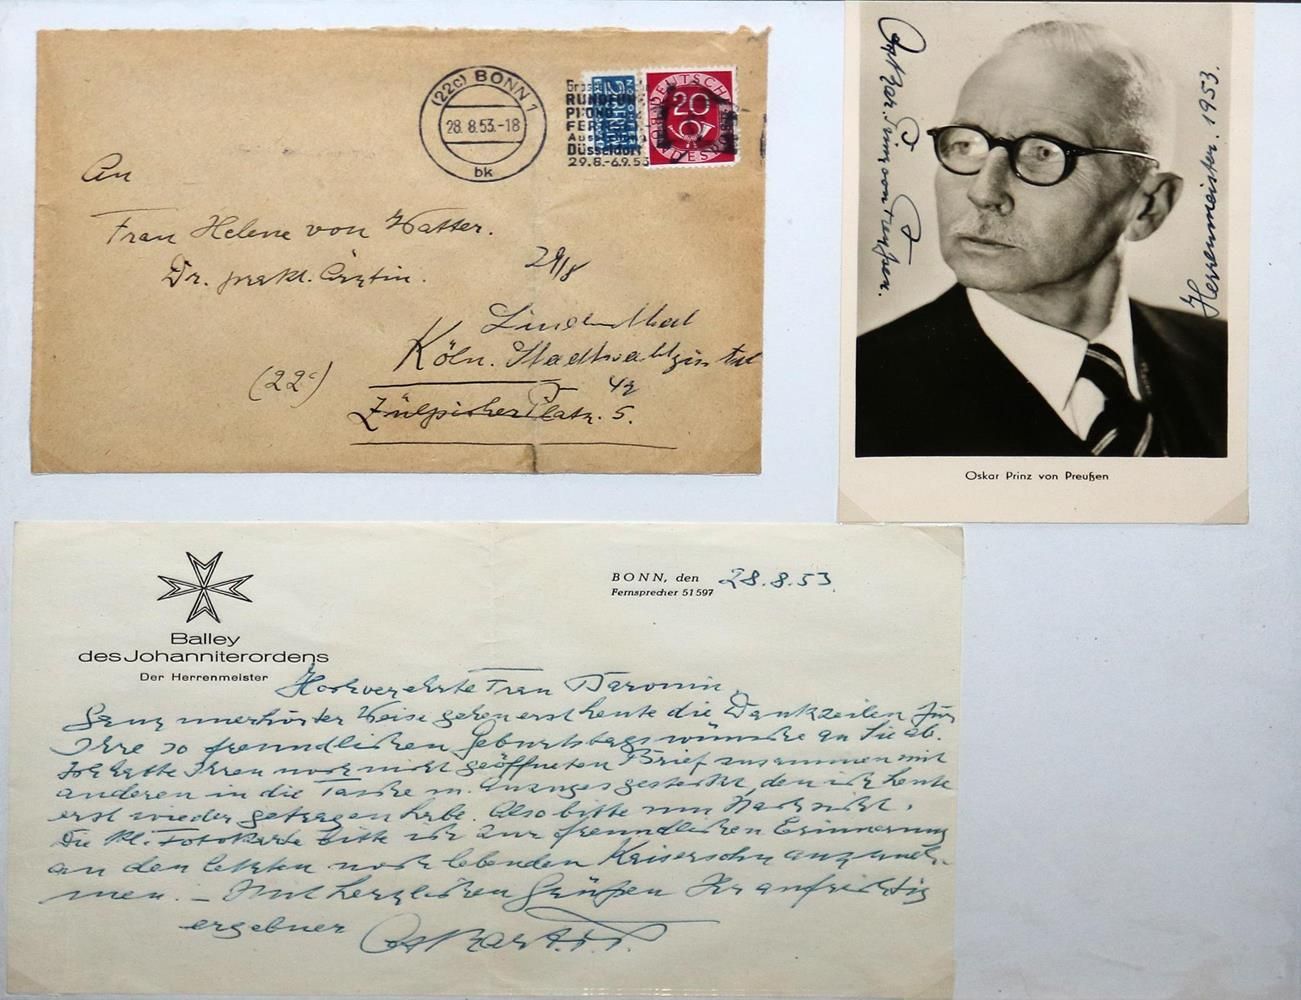 (22c) BONN 1
28.8.53.-18
bk
RUNDFUNK
Düsseldorf
29.8.-6.9.53
DEUTSCHE
BUNDESPOST
20
2
An
Frau Helene von Watter.
Dr. prakt. Ärztin.
29/8
Lindenthal
Köln. Stadtwaldgürtel
(22c)
42
Zülpicher Platz. 5.
Oskar. Prinz von Preußen.
Herrenmeister. 1953.
Oskar Prinz von Preußen
Balley
des Johanniterordens
Der Herrenmeister
BONN, den 28.8.53.
Fernsprecher 51597
Hochverehrte Frau Baronin,
Ganz unerhörter Weise gehen erst heute die Dankzeilen für
Ihre so freundlichen Geburtstagswünsche an Sie ab.
Ich hatte Ihren noch nicht geöffneten Brief zusammen mit
anderen in die Tasche m. Anzuges gesteckt, den ich heute
erst wieder getragen habe. Also bitte um Nachsicht.
Die kl. Fotokarte bitte ich zur freundlichen Erinnerung
an den letzten noch lebenden Kaisersohn anzuneh-
men. – Mit herzlichen Grüßen Ihr aufrichtig
ergebner Oskar P.v.P.